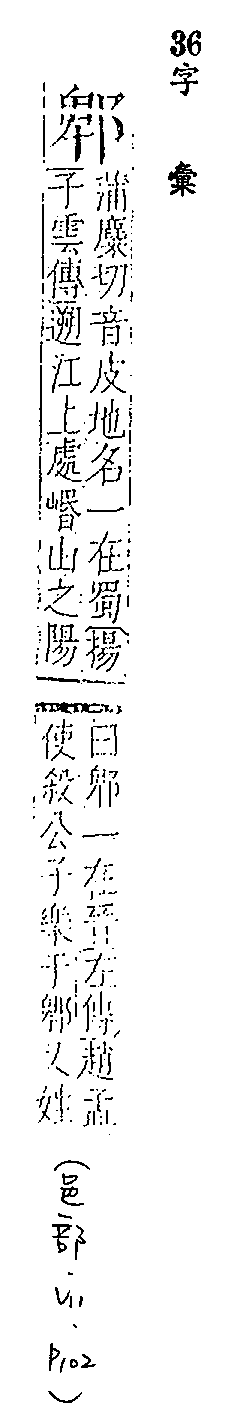 36 字彙
郫
蒲麋切音皮地名一在蜀揚
子雲傳遡江上處㟭山之陽
曰郫一在晉左傳趙孟
使殺公子樂于郫又姓
(邑部·酉·P102)